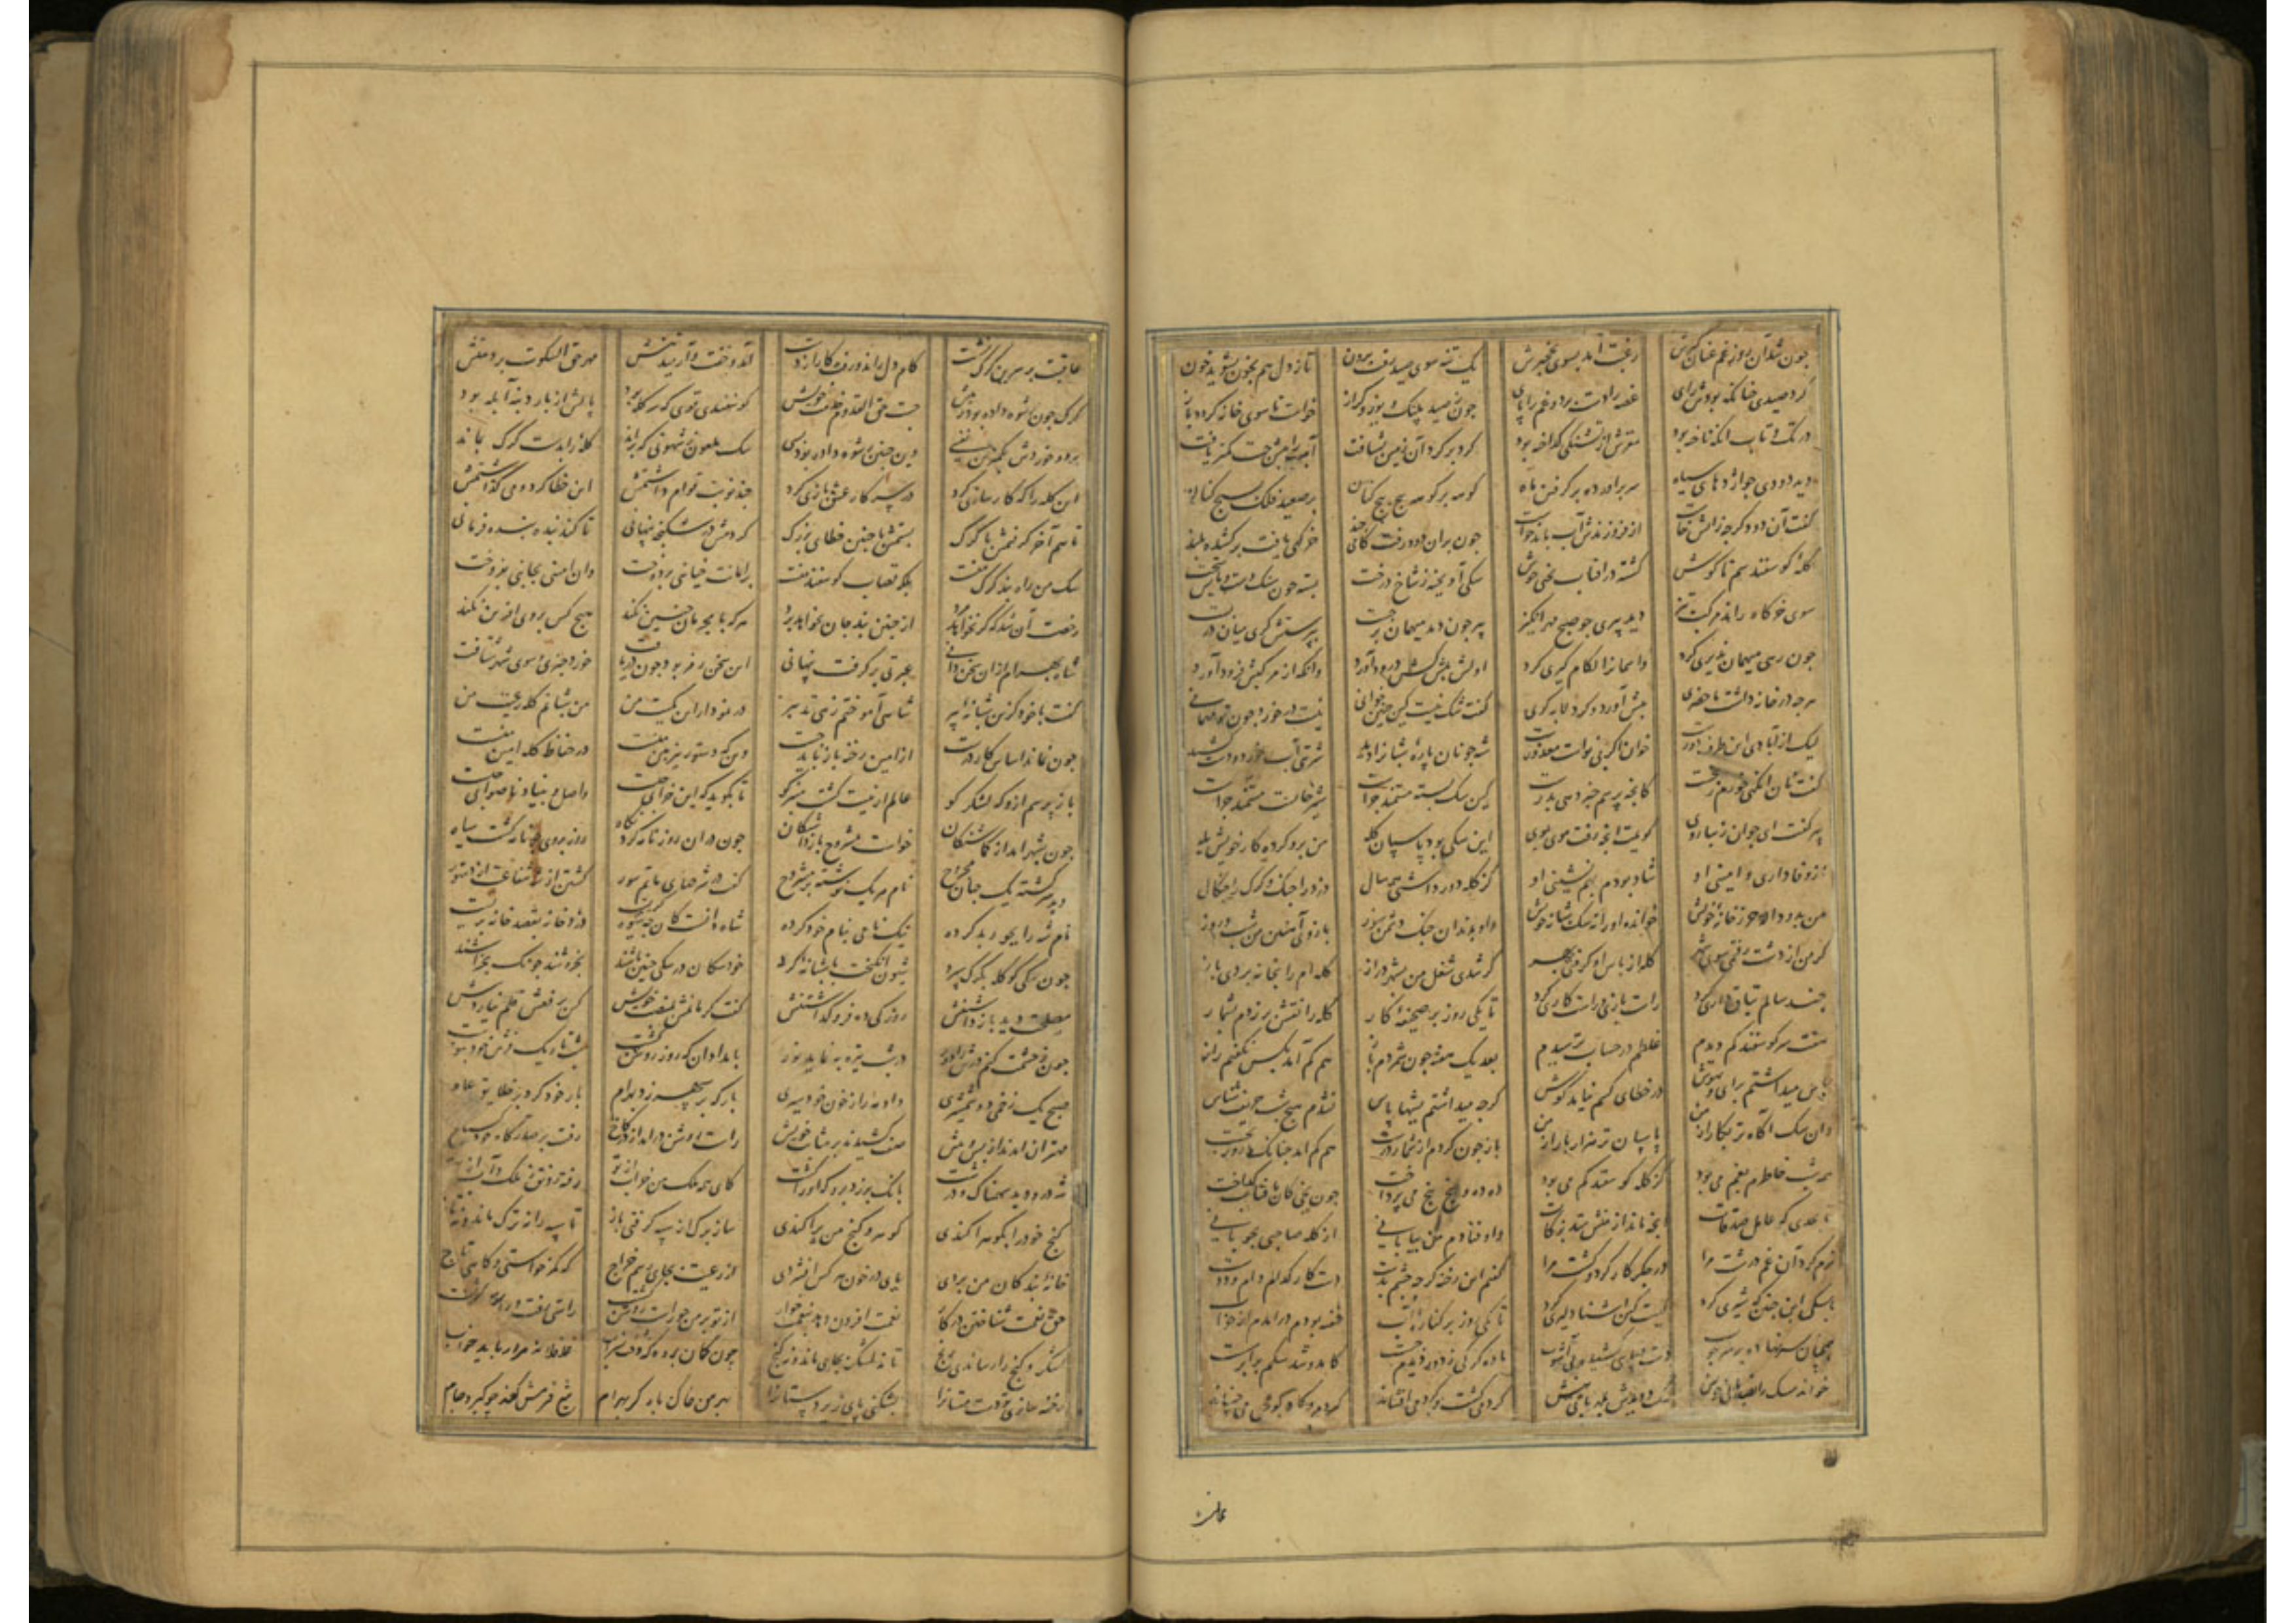 چون شد آن روز غم عنان گیرش رغبت آمد بسوی نخجیرش یک تنه سوی صید رفت برون تا ز دل هم بخون بشوید خون
کرد صیدی چنانکه بودش رای غصه را دست برد و غم را پای چون ز صید پلنگ و یوز و گراز خواست تا سوی خانه گردد باز
در تک و تاب انکه تاخته بود مغزش از تشنگی گداخته بود گرد بر گرد آن زمین بشتافت آب هر چند جست کمتر یافت
دید دودی چو اژدهای سیاه سر براورده بر گرفتن ماه کوهه بر کوهه پیچ پیچ کنان بر صعود فلک بسیچ کنان
گفت آن دود گرچه زاتش خاست از فروزندش آب باید خواست چون بران دود رفت گامی چند خرگهی یافت برکشیده بلند
گله گوسفند سم تا گوش گشته در افتاب یخنی جوش سگی آویخته ز شاخ درخت بسته چون سنگ دست و پایش سخت
سوی خرگاه راند مرکب تیز دید پیری چو صبح مهر انگیز پیر چون دید میهمان برجست بپرستش گری میان دربست
چون زمی میهمان پذیری کرد واسمانرا لگام گیری کرد اولش پیش کش درود آورد وانگه از مرکبش فرود آورد
هرچه در خانه داشت ماحضری پیش آورد و کرد لابه گری گفت شک نیست کین چنین خوانی نیست در خورد چون تو مهمانی
لیک از آبادی این طرف دورست خوان اگر بی نواست معذورست شه چو نان پاره شبانرا دید شربتی آب خورد و دست کشید
گفت نان انگهی خورم ز نخست کانچه پرسم خبر دهی بدرست کین سگ بسته مستمند چراست شیر خانست مستمند چراست
پیر گفت ای جوان زیباروی گویمت انچه رفت موی بموی این سگی بود پاسبان گله من بدو کرده کار خویش یله
از وفاداری و امینی او شاد بودم بهم نشینی او کز گله دور داشتی همه سال دزد را چنگ و گرگ را چنگال
من بدو داده حرز خانه خویش خوانده او را نه سگ شبانه خویش واو بدندان و چنگ دشمن سوز بازوی آهنین من شب و روز
گر من از دشت رفتمی سوی شهر گله از پاس او گرفتی بهر گر شدی شغل من بشهر دراز گله ام را بخانه بردی باز
چند سالم یتاق داری کرد راست بازی و راست کاری کرد تا یکی روز بر صحیفه کار گله را نقش برزدم بشمار
هفت سر گوسفند کم دیدم غلطم در حساب ترسیدم بعد یک هفته چون شمردم باز هم کم آمد بکس نگفتم راز
پاس میداشتم برای و بهوش در خطای کسم نیامد گوش گرچه میداشتم بشبها پاس نشدم هیچ شب حریف شناس
وان سگ اگاه تر بکار از من پاسبان تر هزار بار از من باز چون کردم از شمار درست هم کم آمد چنانک روز نخست
همه شب خاطرم بغم می بود کز گله گوسفند کم می بود ده ده و پنج پنج می پرداخت چون یخی کان بافتاب گداخت
تا بحدی که عامل صدقات انچه ماند از منش ستد بزکات واو فتادم من بیابانی از گله صاحبی بچوپانی
نرم کرد آن غم درشت مرا در جگر کار کرد و کشت مرا گفتم این رخنه گر ز چشم بدست دستکار کدام دام و ددست
با سگی این چنین که شیری کرد کیست کین اشنا دلیری کرد تا یکی روز بر کناره آب خفته بودم درامدم از خواب
همچنان سر نهاده بر سر چوب دست و پائی کشیده بی آشوب ماده گرگی ز دور دیدم چست کامد و شد سگم برابر رست
خواند سگ را بسگ زبانی خویش سگ دویدش بمهربانی پیش گرد می گشت و گرد می افشاند گه دم و گاه گوش می جنباند
عاقبت
عاقبت بر سرین گرگ نشست کام دل راند و رفت کار از دست آمد و خفت و آرمید تنش مهر حق السکوت بر دهنش
گرگ چون رشوه داده بود ز پیش جست حق القدوم خدمت خویش گوسفندی قوی که سر گله بود پایش از بار دنبه آبله بود
برد و خوردش بکمترین نفسی وین چنین رشوه داده بود بسی سگ ملعون بشهوتی که براند گله را بدست گرگ بماند
این گله را که کارسازی کرد در سر کار عشق بازی کرد چند نوبت معاف داشتمش این خطا کرد و می گذاشتمش
تا هم آخر گرفتمش با گرگ بستمش با چنین خطای بزرگ کردمش در شکنجه پنهانی تا کند بنده بنده فرمانی
سگ من راه بند گرگ منست بلکه قصاب گوسفند منست بر امانت خیانتی بردوخت وان امینی بخائنی بفروخت
رخصت آن شد که گر نخواهد مرد از چنین بند جان نخواهد برد هر که با مجرمان چنین نکند هیچ کس بروی افرین نکند
شاه بهرام ازان سخن دانی عبرتی برگرفت پنهانی این سخن رمز بود چون دریافت خورد چیزی و سوی شهر شتافت
گفت با خود کزین شبانه پیر شاهی آموختم زهی تدبیر در نمودار این گیت من من شبانم گله رعیت من
چون نماند اساس کار درست از امین رخنه باز باید جست وین که دستور نیز من منست در حفاظ گله امین منست
باز پرسم ازو که لشکر کو عالم از نیست گشت کشور کو تا بگوید که این خرابی چیست واصل و بنیاد ناصوابی چیست
چون بشهر امد از گماشتگان خواست مشروح بازداشتگان چون دران روزنامه کرد نگاه روز بر وی چو نامه گشت سیاه
دید سرگشته یک جهان مجروح نام هر یک نوشته بر مشروح گفته در شرحهای ماتم و سور کشتن از شه شفاعت از دستور
نام شه را بجور بد کرده نیک نامی بنام خود کرده شاه دانست کان چه شیوه گریست دزد خانه بقصد خانه بریست
چون سگی کو گله بگرگ سپرد شیون انگیخت با شبانه کرد خود سگان در سگی چنین باشند بخروشند چونک بخراشند
مصلحت دید بازداشتنش روزکی ده فرو گذاشتنش گفت گر مانمش بمنصب خویش کس بر فعتش قلم نیارد پیش
چون ز حشمت کنم درش را دور در شب تیره به نماید نور بامدادان که روز روشن گشت شب تاریک فرش خود بنوشت
صبح یک زخمی دو شمشیری داد مه را ز خون خود سیری بارگه بر سپهر زد بهرام بار خود کرد بر خلایق عام
مهتران امدند از پس و پیش صف کشیدند بر مثابت خویش راست روشن درامد از در کاخ رفت بر صدر گاه خود گستاخ
شه درو دید سهمناک و درشت بانگ برزد برو که اورا کشت کای همه ملک من خراب از تو رفته رونق ز ملک و آب از تو
گنج خود را بگوهر اکندی گوهر و گنج من پراکندی ساز و برگ از سپه گرفتی باز تا سپه را نه برگ ماند و نه ساز
خانه بندگان من بردی پای در خون هر کس افشردی از رعیت بجای رسم خراج گه کمر خواستی و گاهی تاج
حق نعمت شناختن در کار نعمت افزون دهد بنعمت خوار از تو بر من چو راست روشن گشت راستی رفت و راه ... گذشت
لشکر و گنج را رساندی رنج تا نه لشکر بجای ماند و نه گنج چون گمان برده که وقت شراب غافلانه مرا رباید خواب
رخنه سازی تو دست مستانرا بشکنی پای زیردستانرا بر من خاک باد گر بهرام تیغ فرمش کند چو گیرد جام